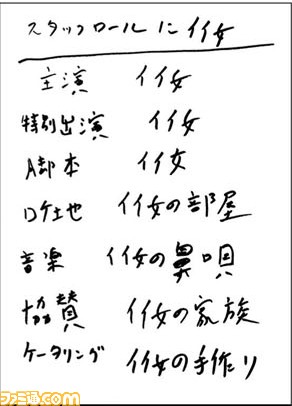 スタッフロールに イイ女
主演 イイ女
特別出演 イイ女
脚本 イイ女
ロケ地 イイ女の部屋
音楽 イイ女の鼻唄
協賛 イイ女の家族
ケータリング イイ女の手作り
ファミ通.com